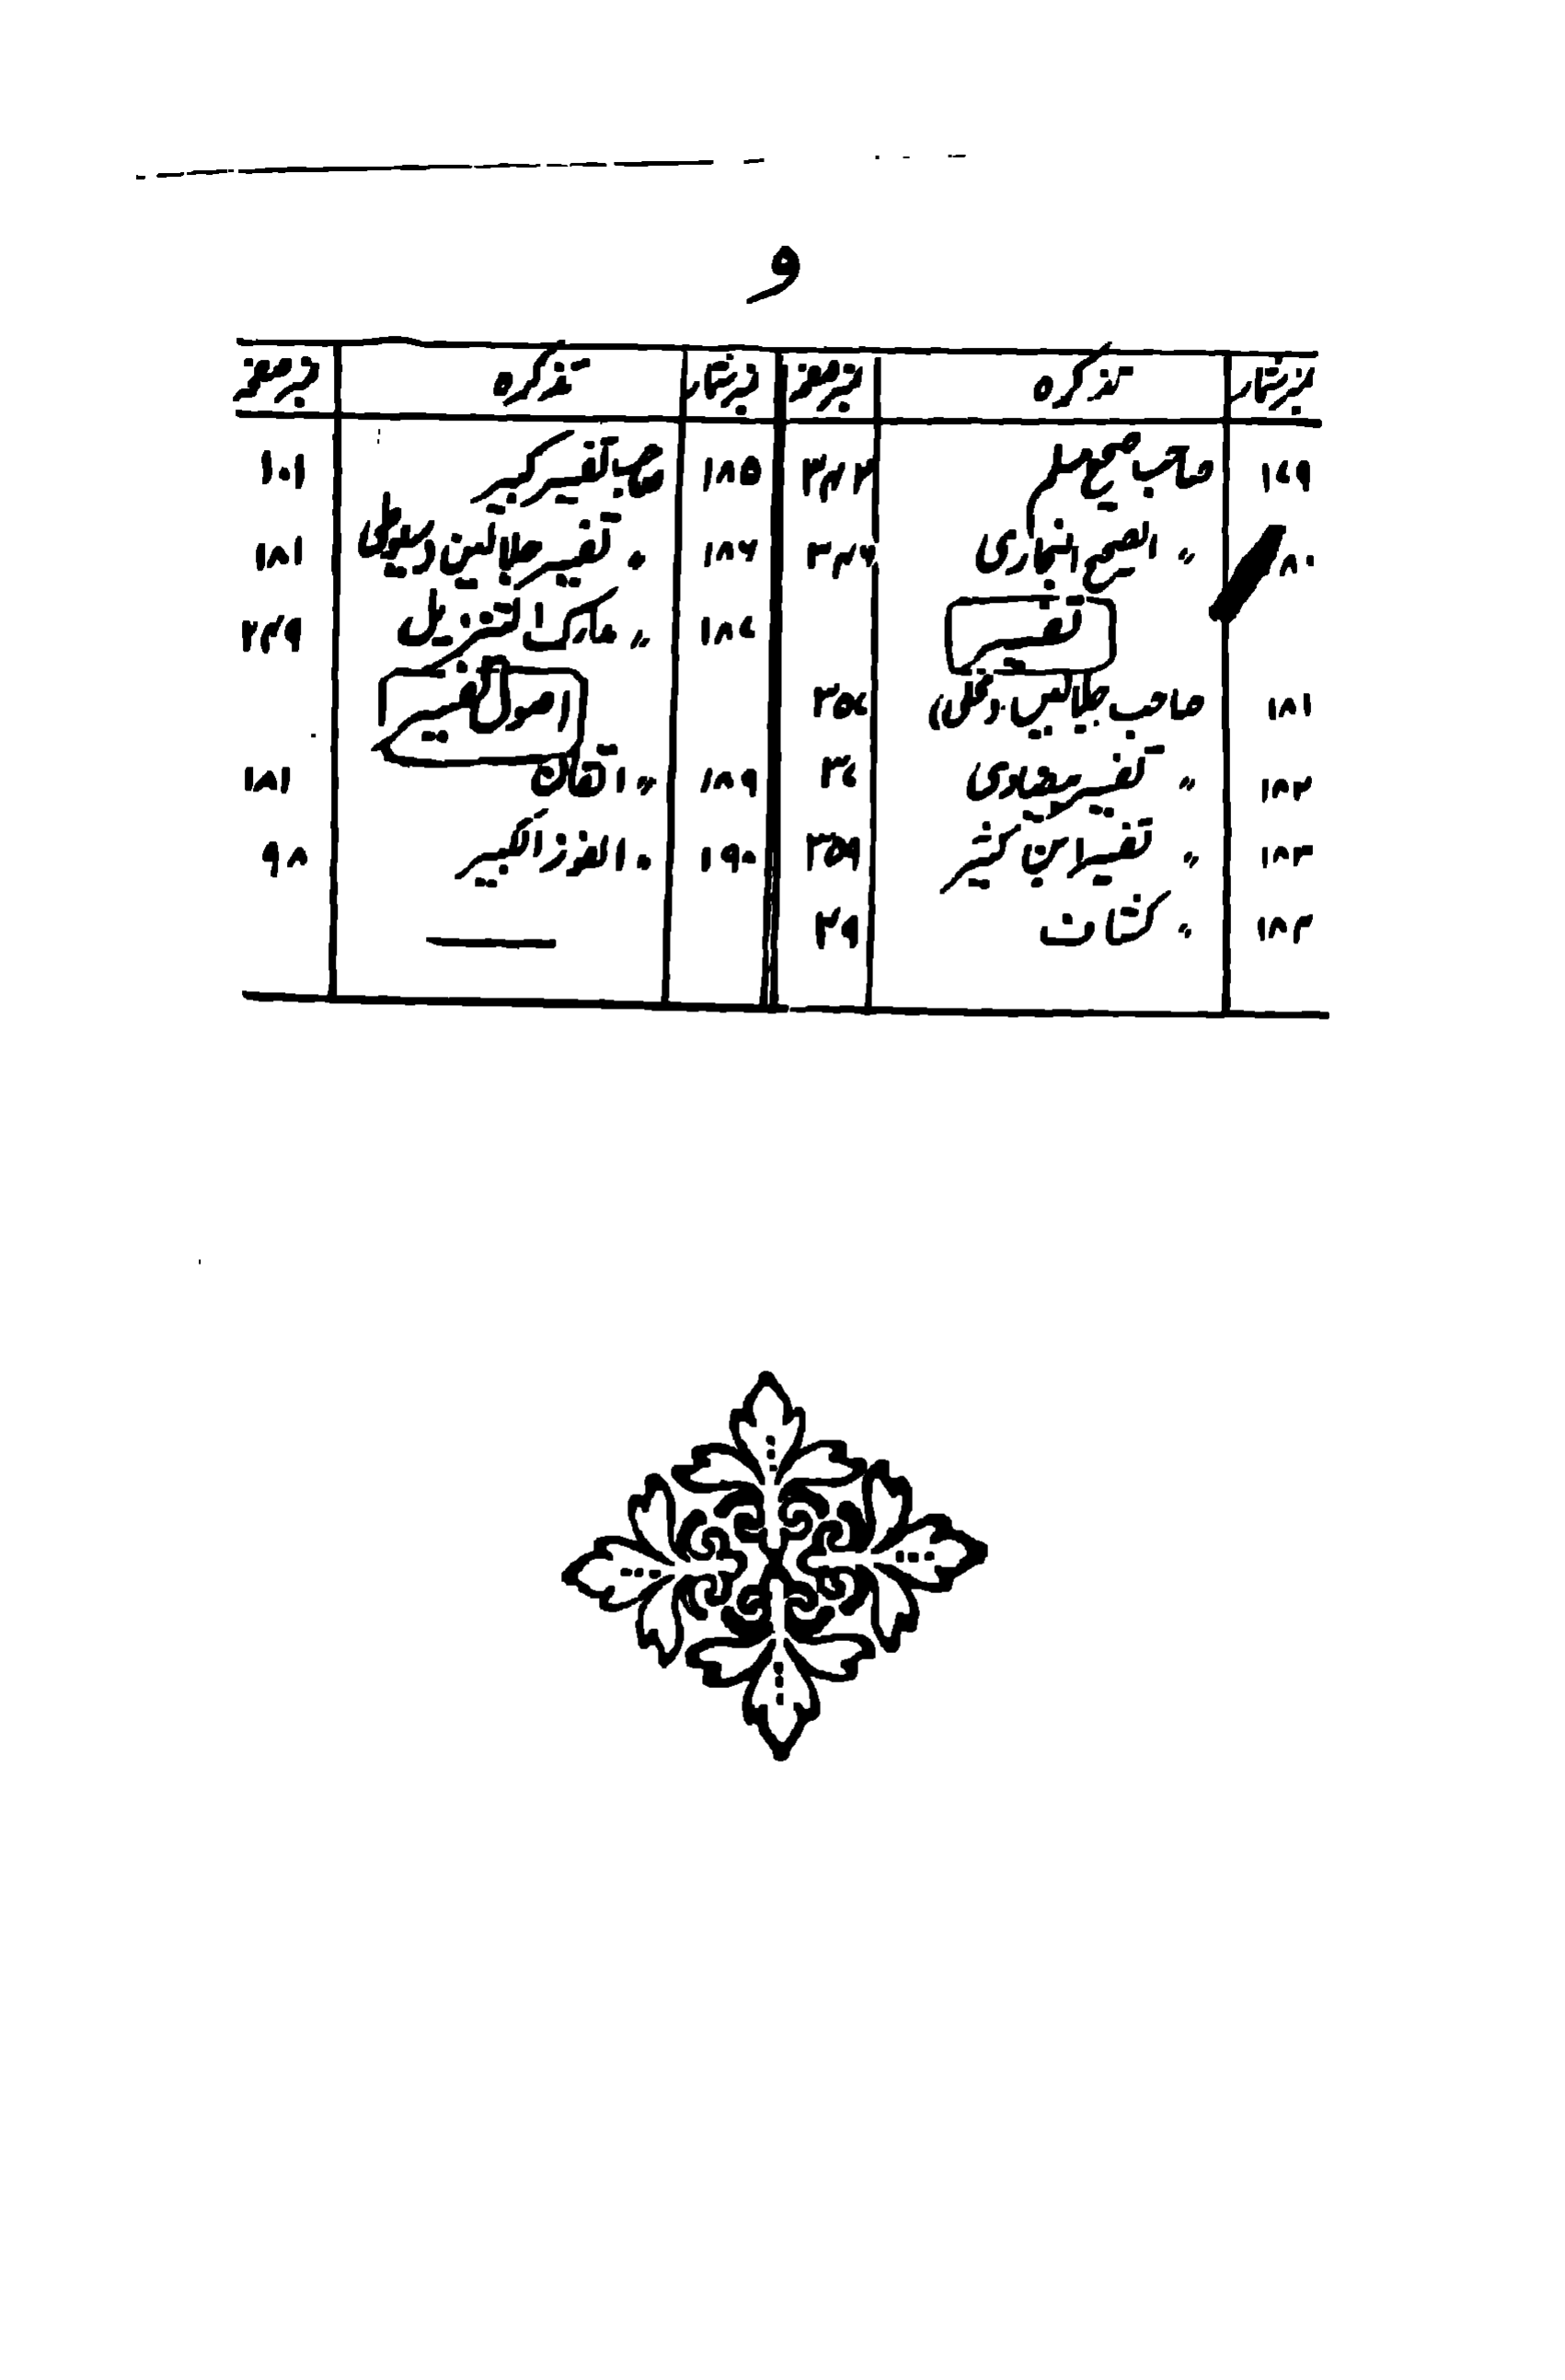 و
نمبرشمار تذکرہ نمبرصفحہ نمبرشمار تذکرہ نمبرصفحہ
۱۷۹ صاحب صحیح مسلم ۱۸۵ صاحب تفسیر کبیر ۱۰۱
۸۰ " الصحیح البخاری ۱۸۶ " تفسیر جلالین (سیوطی) ۱۸۱
تفسیر ۱۸۷ " مدارک التنزیل ۲۳۹
۱۸۱ صاحب جلالین (محلی) ۳۵۷ اصول التفسیر
۱۸۲ " تفسیر بیضاوی ۳۷ ۱۸۹ " اتقان ۱۸۱
۱۸۳ " تفسیر ابن کثیر ۳۵۹ ۱۹۰ " الفوز الکبیر ۹۸
" کشاف ۳۹